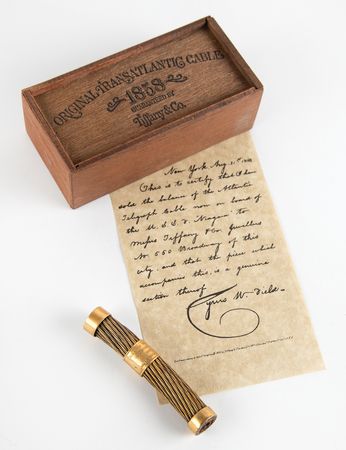 ORIGINAL TRANSATLANTIC CABLE
1858
GUARANTEED BY
Tiffany & Co.
New York Aug 21st, 1858
This is to certify that I have
sold the balance of the Atlantic
Telegraph Cable now on board of
the U.S.S.F. Niagara to
Mess'rs Tiffany & Co. Jewellers
No 550 Broadway of this
city, and that the piece which
accompanies this, is a genuine
section thereof
Cyrus W. Field.